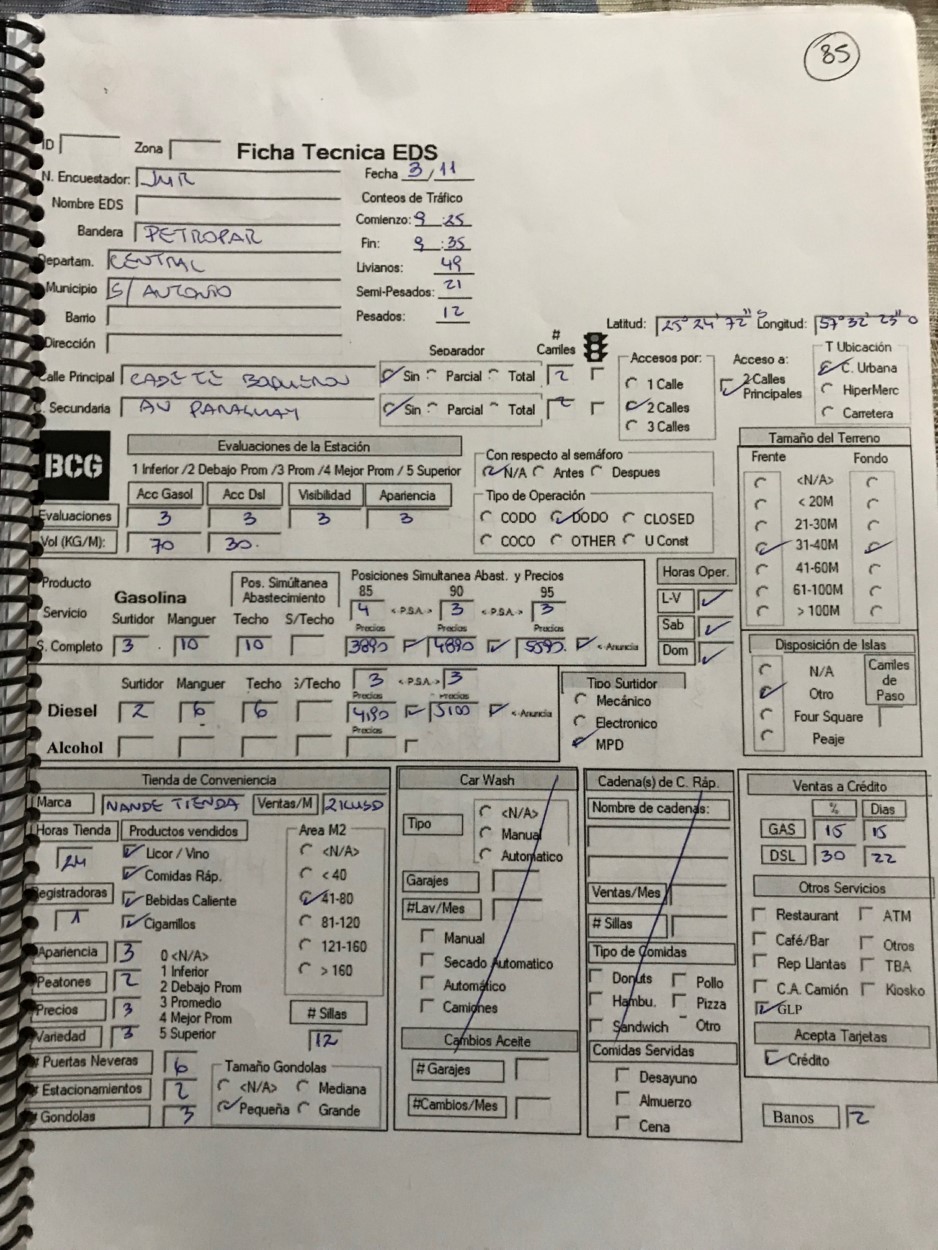 85
ID Zona Ficha Tecnica EDS
N. Encuestador: JMR Fecha 3/11
Nombre EDS Conteos de Tráfico
Bandera PETROPAR Comienzo: 9:25
Fin: 9:35
Departam. CENTRAL Livianos: 49
Municipio S/ ANTONIO Semi-Pesados: 21
Barrio Pesados: 12
Latitud: 25° 24' 72" S Longitud: 57° 32' 23" O
Dirección
Separador # Carriles Accesos por: Acceso a: T Ubicación
Calle Principal CADETE BOQUERON Sin Parcial Total 2 1 Calle 2 Calles Principales C. Urbana
C. Secundaria AV PARAGUAY Sin Parcial Total 2 2 Calles HiperMerc
3 Calles Carretera
BCG Evaluaciones de la Estación Con respecto al semáforo Tamaño del Terreno
1 Inferior /2 Debajo Prom /3 Prom /4 Mejor Prom / 5 Superior N/A Antes Despues Frente Fondo
Acc Gasol Acc Dsl Visibilidad Apariencia Tipo de Operación <N/A>
Evaluaciones 3 3 3 3 CODO DODO CLOSED < 20M
Vol (KG/M): 70 30. COCO OTHER U Const 21-30M
31-40M
41-60M
61-100M
> 100M
Producto Pos. Simúltanea Abastecimiento Posiciones Simultanea Abast. y Precios Horas Oper.
Gasolina 85 90 95 L-V
Servicio Surtidor Manguer Techo S/Techo 4 <P.S.A.> 3 <P.S.A.> 3 Sab
Precios Precios Precios
S. Completo 3 10 10 3890 4890 5590. <-Anuncia Dom
Disposición de Islas
N/A Carriles de Paso
Otro
Four Square
Peaje
Surtidor Manguer Techo S/Techo 3 <P.S.A.> 3 Tipo Surtidor
Precios Precios Mecánico
Diesel 2 6 6 4190 5100 <-Anuncia Electronico
Precios MPD
Alcohol
Tienda de Conveniencia
Marca NANDE TIENDA Ventas/M 21KUSD
Horas Tienda Productos vendidos Area M2
24 Licor / Vino <N/A>
Comidas Ráp. < 40
Registradoras Bebidas Caliente 41-80
1 Cigarrillos 81-120
Apariencia 3 0 <N/A> 121-160
1 Inferior > 160
Peatones 2 2 Debajo Prom
Precios 3 3 Promedio # Sillas
4 Mejor Prom 12
Variedad 3 5 Superior
# Puertas Neveras 6 Tamaño Gondolas
# Estacionamientos 2 <N/A> Mediana
# Gondolas 3 Pequeña Grande
Car Wash
Tipo <N/A>
Manual
Automatico
Garajes
#Lav/Mes
Manual
Secado Automatico
Automático
Camiones
Cambios Aceite
# Garajes
#Cambios/Mes
Cadena(s) de C. Ráp.
Nombre de cadenas:
Ventas/Mes
# Sillas
Tipo de Comidas
Donuts Pollo
Hambu. Pizza
Sandwich Otro
Comidas Servidas
Desayuno
Almuerzo
Cena
Ventas a Crédito
% Dias
GAS 15 15
DSL 30 22
Otros Servicios
Restaurant ATM
Café/Bar Otros
Rep Llantas TBA
C.A. Camión Kiosko
GLP
Acepta Tarjetas
Crédito
Banos 2